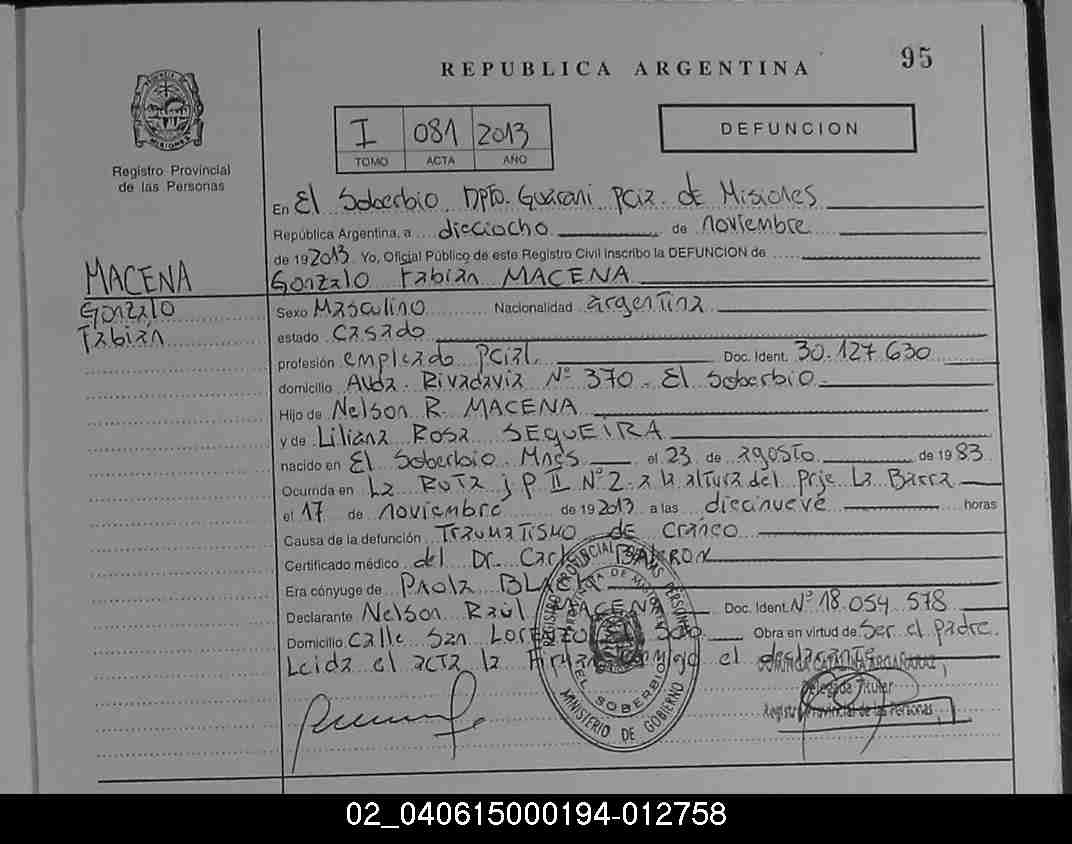 95
REPUBLICA ARGENTINA
I 081 2013
TOMO ACTA AÑO
DEFUNCION
PROVINCIA DE MISIONES
Registro Provincial
de las Personas
En El Soberbio Dpto. Guarani pcia. de Misiones
República Argentina, a dieciocho de noviembre
de 192013 Yo, Oficial Público de este Registro Civil inscribo la DEFUNCION de
MACENA
Gonzalo Fabián MACENA
Gonzalo
Sexo Masculino Nacionalidad argentina
Fabián
estado Casado
profesión empleado pcial. Doc. Ident. 30.127.630
domicilio Avda. Rivadavia Nº 370 - El Soberbio
Hijo de Nelson R. MACENA
y de Liliana Rosa SEQUEIRA
nacido en El Soberbio Mnes el 23 de agosto de 1983
Ocurrida en La Ruta j p II Nº 2 a la altura del Prje La Barra
el 17 de noviembre de 192013 a las diecinueve horas
Causa de la defunción Traumatismo de Craneo
Certificado médico del Dr.
Era cónyuge de Paola
Declarante Nelson Raúl MACENA Doc. Ident. Nº 18.054.578
Domicilio Calle San Lorenzo Obra en virtud de Ser el padre.
Leida el acta la el declarante
REGISTRO PROVINCIAL DE LAS PERSONAS
PROVINCIA DE MISIONES
EL SOBERBIO
MINISTERIO DE GOBIERNO
Delegada Titular
Registro Provincial de las Personas
02_040615000194-012758